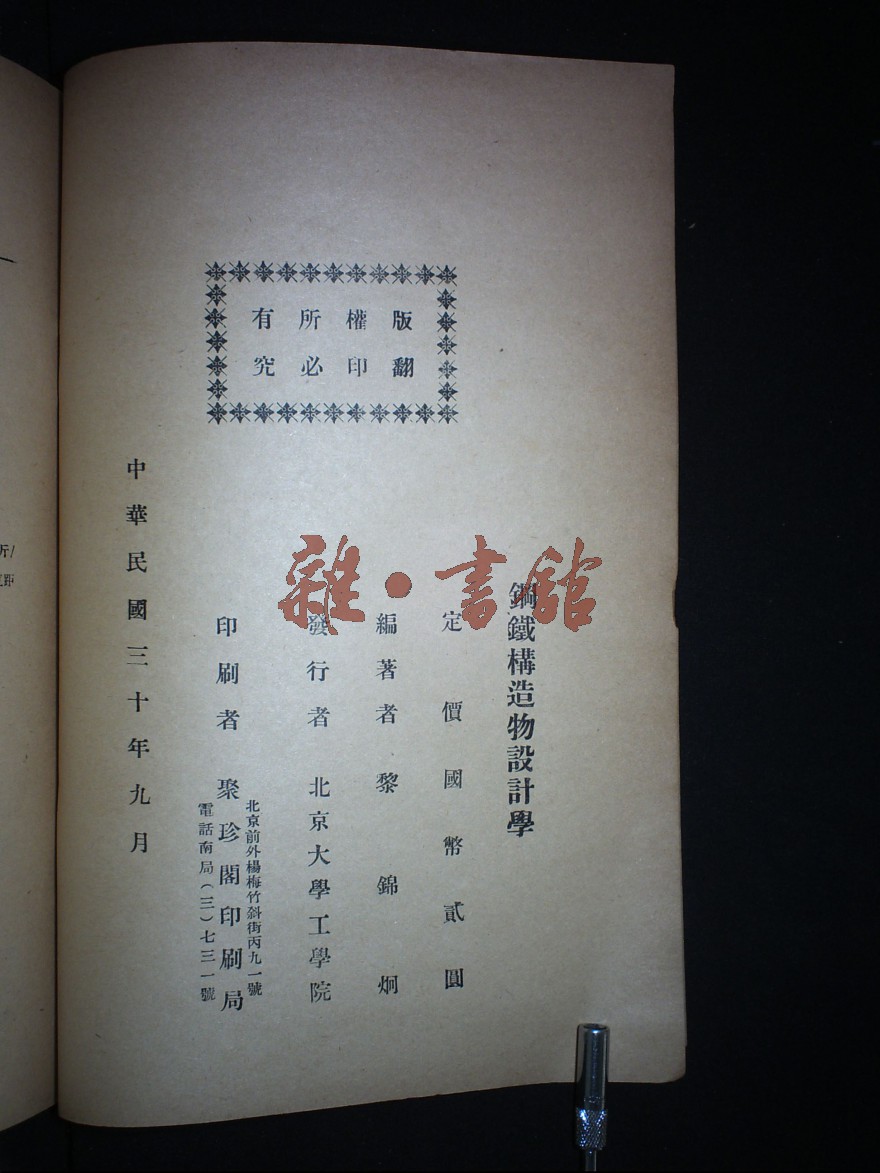 鋼鐵構造物設計學
定價國幣貳圓
編著者 黎錦炯
發行者 北京大學工學院
北京前外楊梅竹斜街丙九一號
印刷者 聚珍閣印刷局
電話南局(三)七三一號
中華民國三十年九月
版權所有
翻印必究
雜·書館